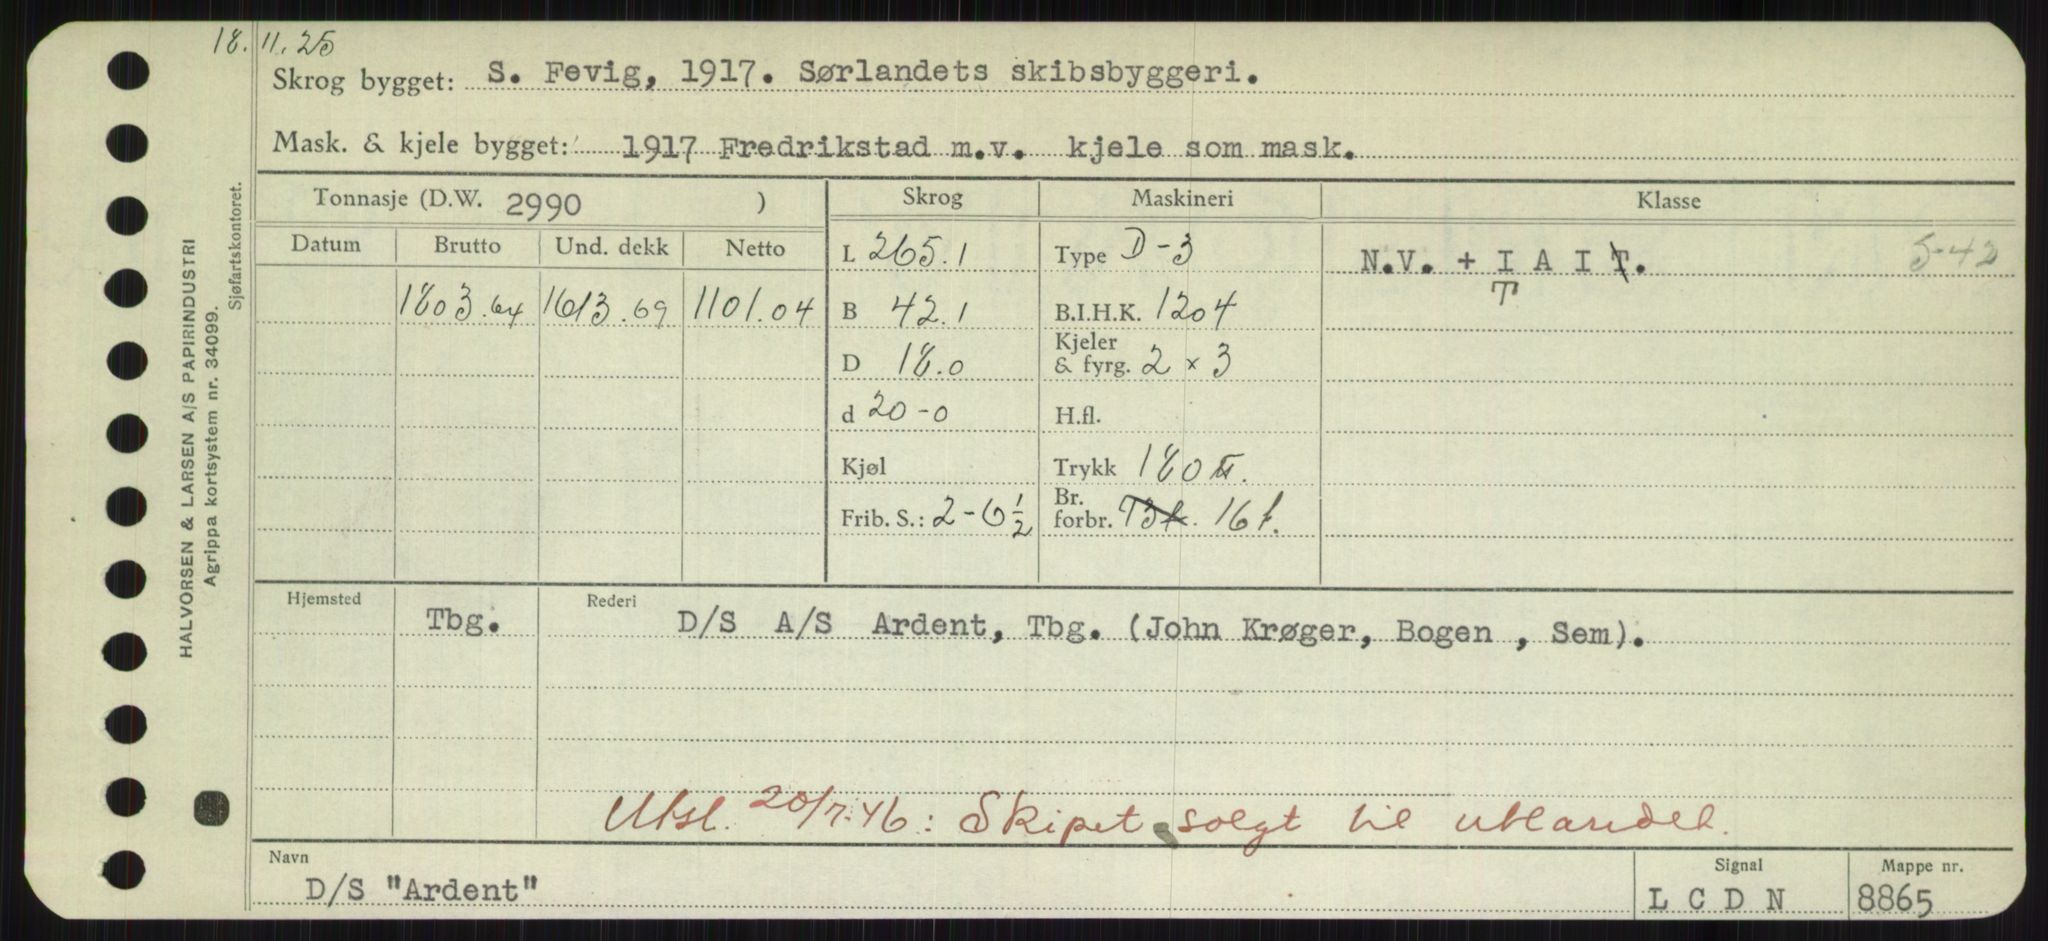 18. 11. 25
Skrog bygget: S. Fevig, 1917. Sørlandets skibsbyggeri.
Mask. & kjele bygget: 1917 Fredrikstad m.v. kjele som mask.
Tonnasje (D.W. 2990 )
Skrog
Maskineri
Klasse
Datum
Brutto
Und. dekk
Netto
1803.64
1613.69
1101.04
L 265.1
B 42.1
D 18.0
d 20-0
Kjøl
Frib. S.: 2-6 1/2
Type D-3
B.I.H.K. 1204
Kjeler
& fyrg. 2 x 3
H.fl.
Trykk 180
Br.
forbr. 13 t. 16 t.
N.V. + I A I T.
T
5-42
Hjemsted
Tbg.
Rederi
D/S A/S Ardent, Tbg. (John Krøger, Bogen , Sem).
Utsl. 20/7.46: Skipet solgt til utlandet.
Navn
D/S "Ardent"
Signal
L C D N
Mappe nr.
8865
HALVORSEN & LARSEN A/S PAPIRINDUSTRI
Agrippa kortsystem nr. 34099.
Sjøfartskontoret.